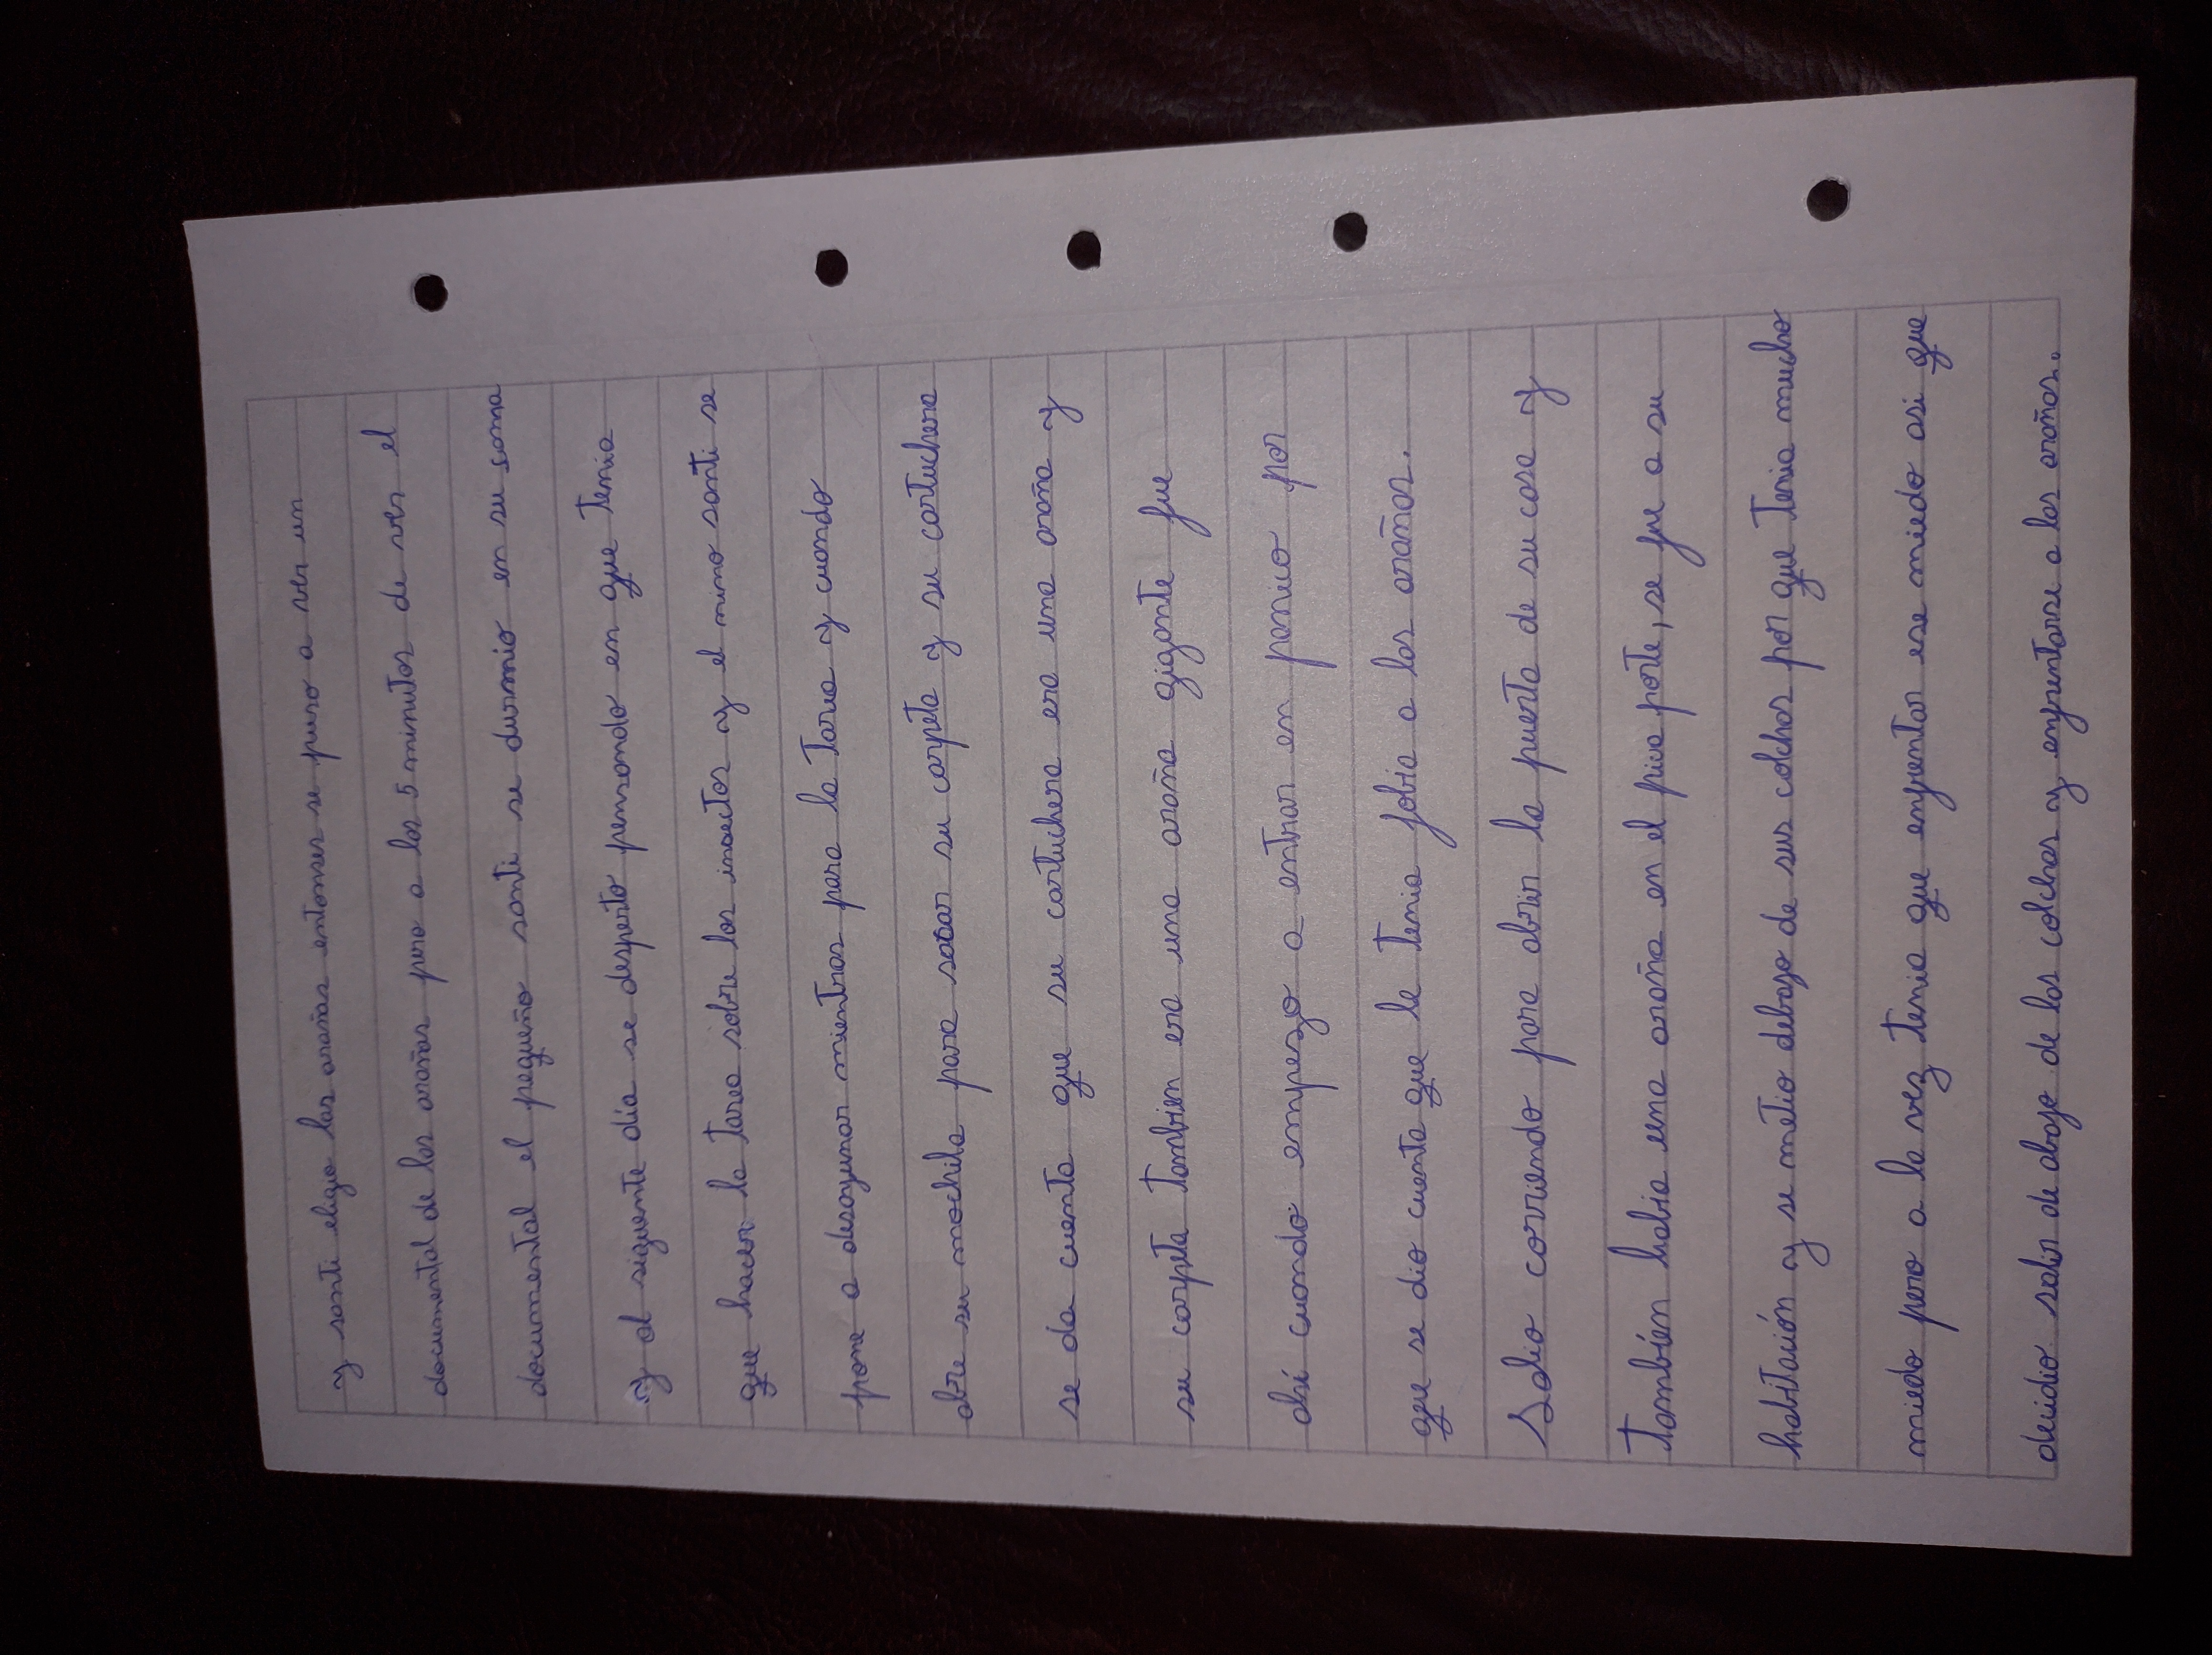 y santi eligio las arañas entonses se puso a ver un
documental de las arañas pero a los 5 minutos de ver el
documental el pequeño santi se durmio en su cama
y al siguente día se desperto pensando en que tenia
que hacer la tarea sobre los insectos y el mimo santi se
pone a desayunar mientras para la tarea y cuando
abre su mochila para sacar su carpeta y su cartuchera
se da cuenta que su cartuchera era una araña y
su carpeta tambien era una araña gigante fue
ahí cuando empezo a entrar en panico por
que se dio cuenta que le tenia fobia a las arañas.
Salio corriendo para abrir la puerta de su casa y
también habia una araña en el pica porte, se fue a su
habitación y se metio debajo de sus colchas por que tenia mucho
miedo pero a la vez tenia que enfrentar ese miedo asi que
decidio salir de abajo de las colchas y enfrentarse a las arañas.